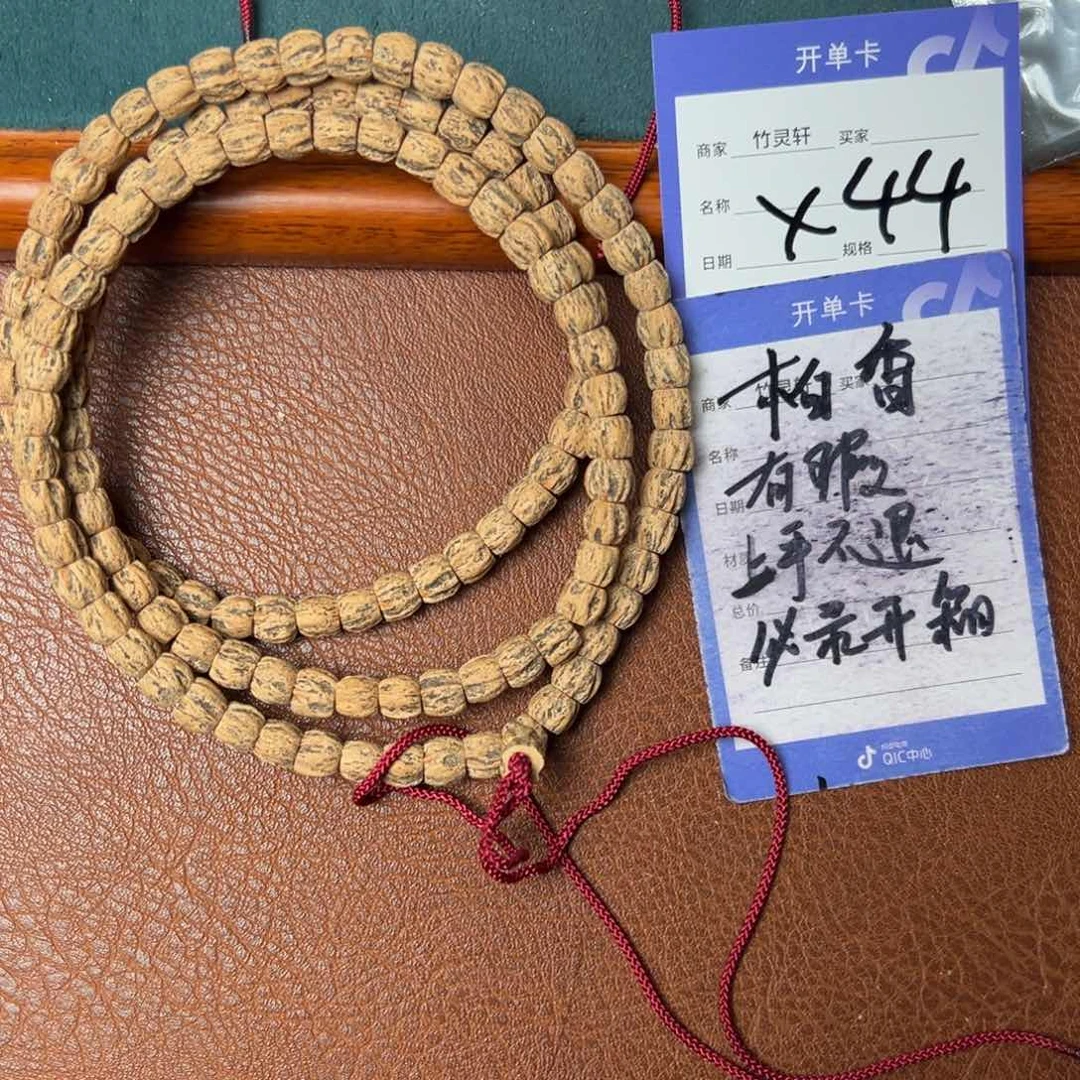 开单卡
商家 竹灵轩 买家
名称
x44
日期 规格
开单卡
柏香
商家 竹灵轩 买家
名称
有瑕
日期
上手不退
材质
总价
必录开箱
备注
QIC中心